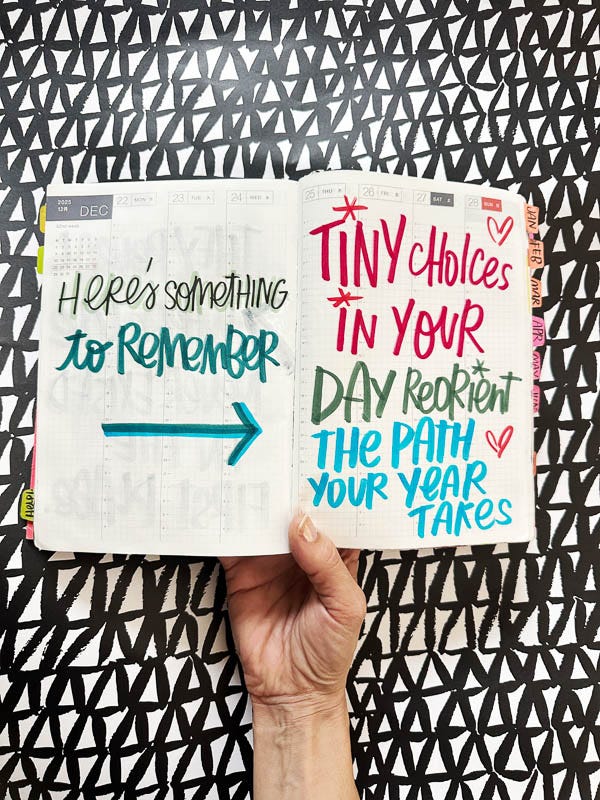 2025
12月 DEC
22 MON
23 TUE
24 WED
Here's something
to Remember
Help!
25 THU
26 FRI
27 SAT
28 SUN
TINY choices
in your
DAY ReoRient
THE PATH
your year
TAKES
JAN
FEB
MAR
APR
MAY